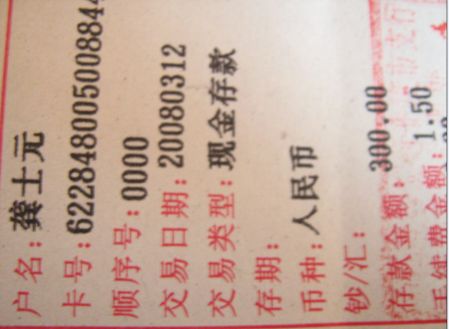 户名:龚士元
卡号:622848005008844
顺序号:0000
交易日期:20080312
交易类型:现金存款
存期:
币种:人民币
钞/汇:
存款金额: 300.00
手续费金额: 1.50